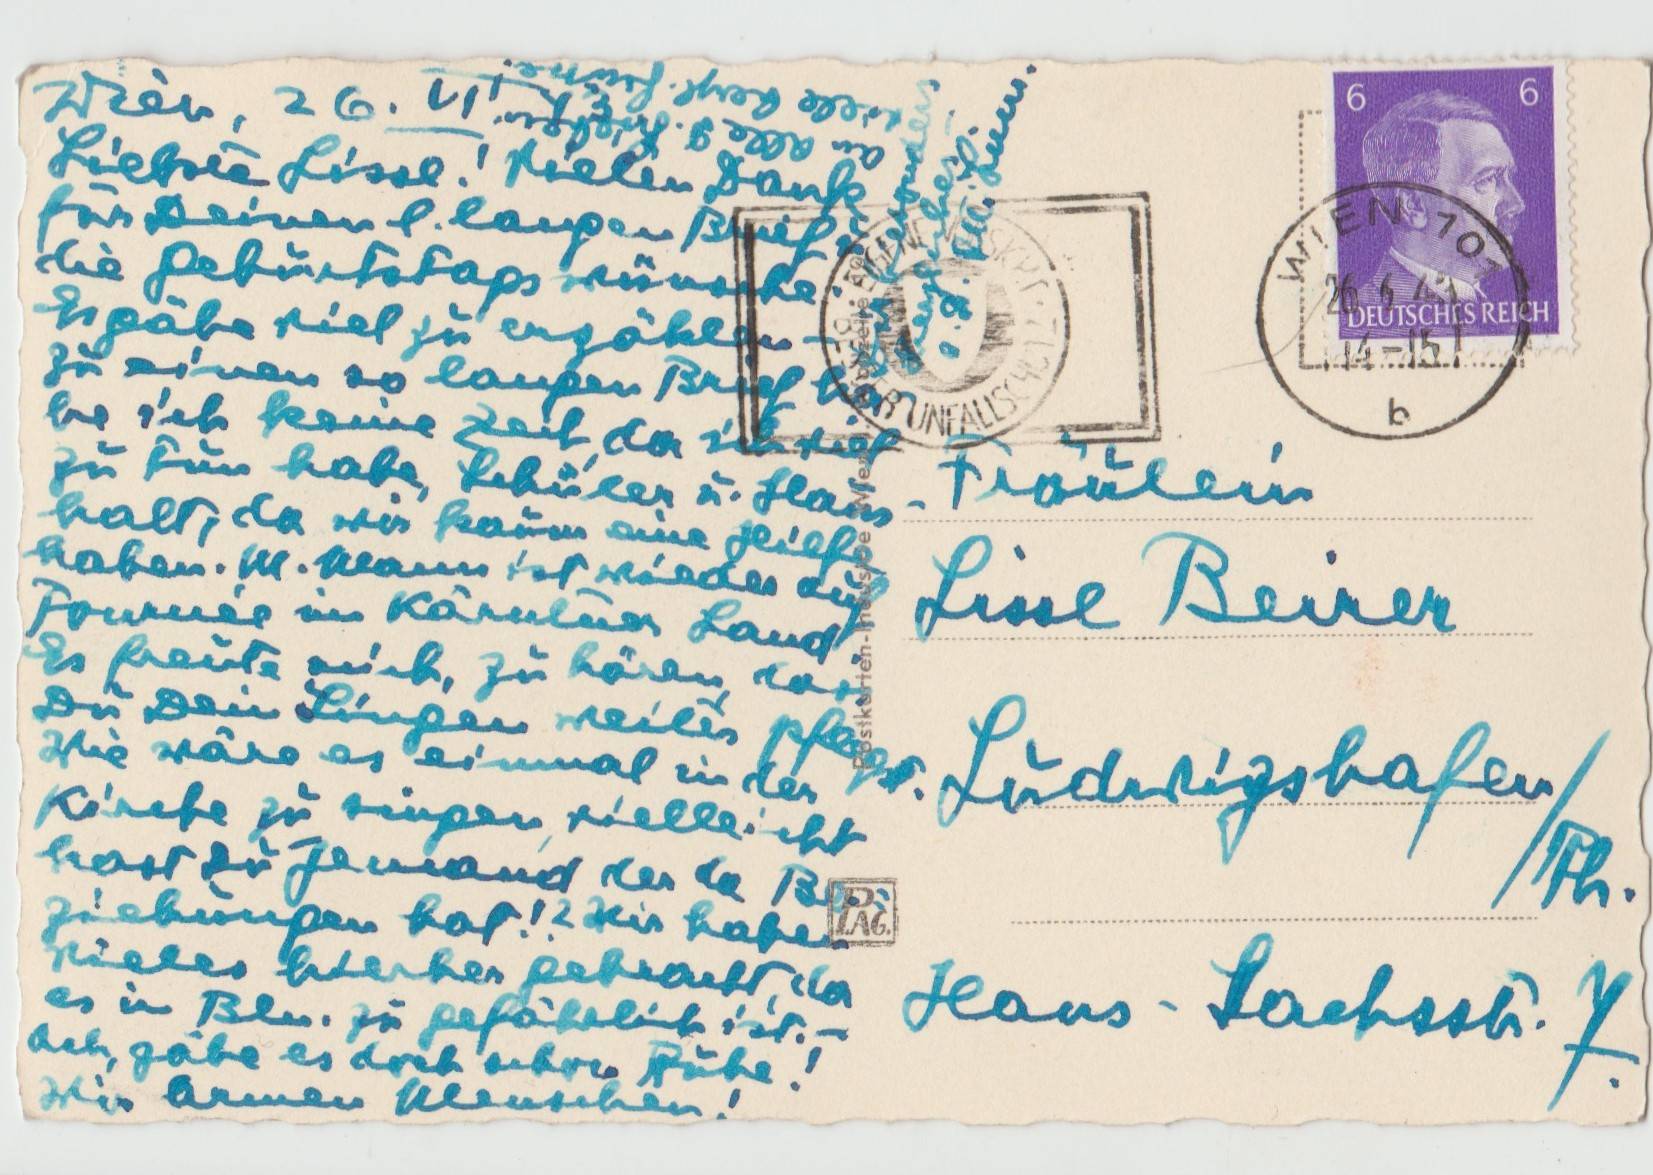 Wien, 26. VI.
Liebste Lisse! Vielen Dank
für Deinen l. langen Brief u.
die Geburtstagswünsche.
Es gäbe viel zu erzählen –
zu einen so langen Brief ha-
be ich keine Zeit, da ich viel
zu tun habe, Schüler u. Haus-
halt, da wir kaum eine Hilfe
haben. M. Mann ist wieder auf
Tournee im Kärntner Land
Es freute mich, zu hören, dass
Du Dein Singen weiter pflegst.
Wie wäre es einmal in der
Kirche zu singen, vielleicht
hast Du Jemand der da Be-
ziehungen hat!? Wir haben
vieles hierher gebracht, da
es in Bln. zu gefährlich ist. –
Ach, gäbe es doch schon Ruhe!
Wir armen Menschen!
an alle
viele herzl. Grüße
6 6
DEUTSCHES REICH
WIEN 101
26. 6. 4
14–15
b
UNFALLSCHUTZ
Postkarten-Industrie Wien
P.A.G.
Fräulein
Lisse Beirer
Ludwigshafen
/Rh.
Hans-Sachsstr. 7.